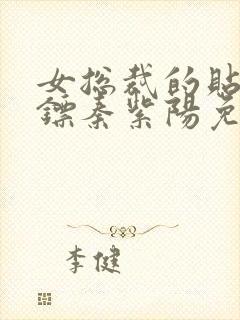 女总裁的贴
镖秦紫阳免
李健